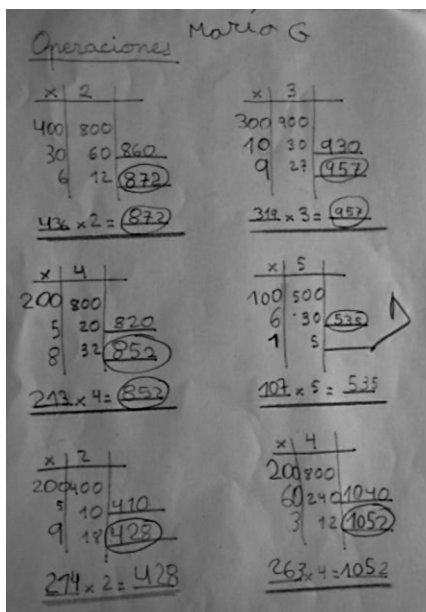 Operaciones María G
x 2
400 800
30 60 860
6 12 872
436 x 2 = 872
x 3
300 900
10 30 930
9 27 957
319 x 3 = 957
x 4
200 800
5 20 820
8 32 852
213 x 4 = 852
x 5
100 500
6 30 535
1 5
107 x 5 = 535
x 2
200 400
5 10 410
9 18 428
214 x 2 = 428
x 4
200 800
60 240 1040
3 12 1052
263 x 4 = 1052